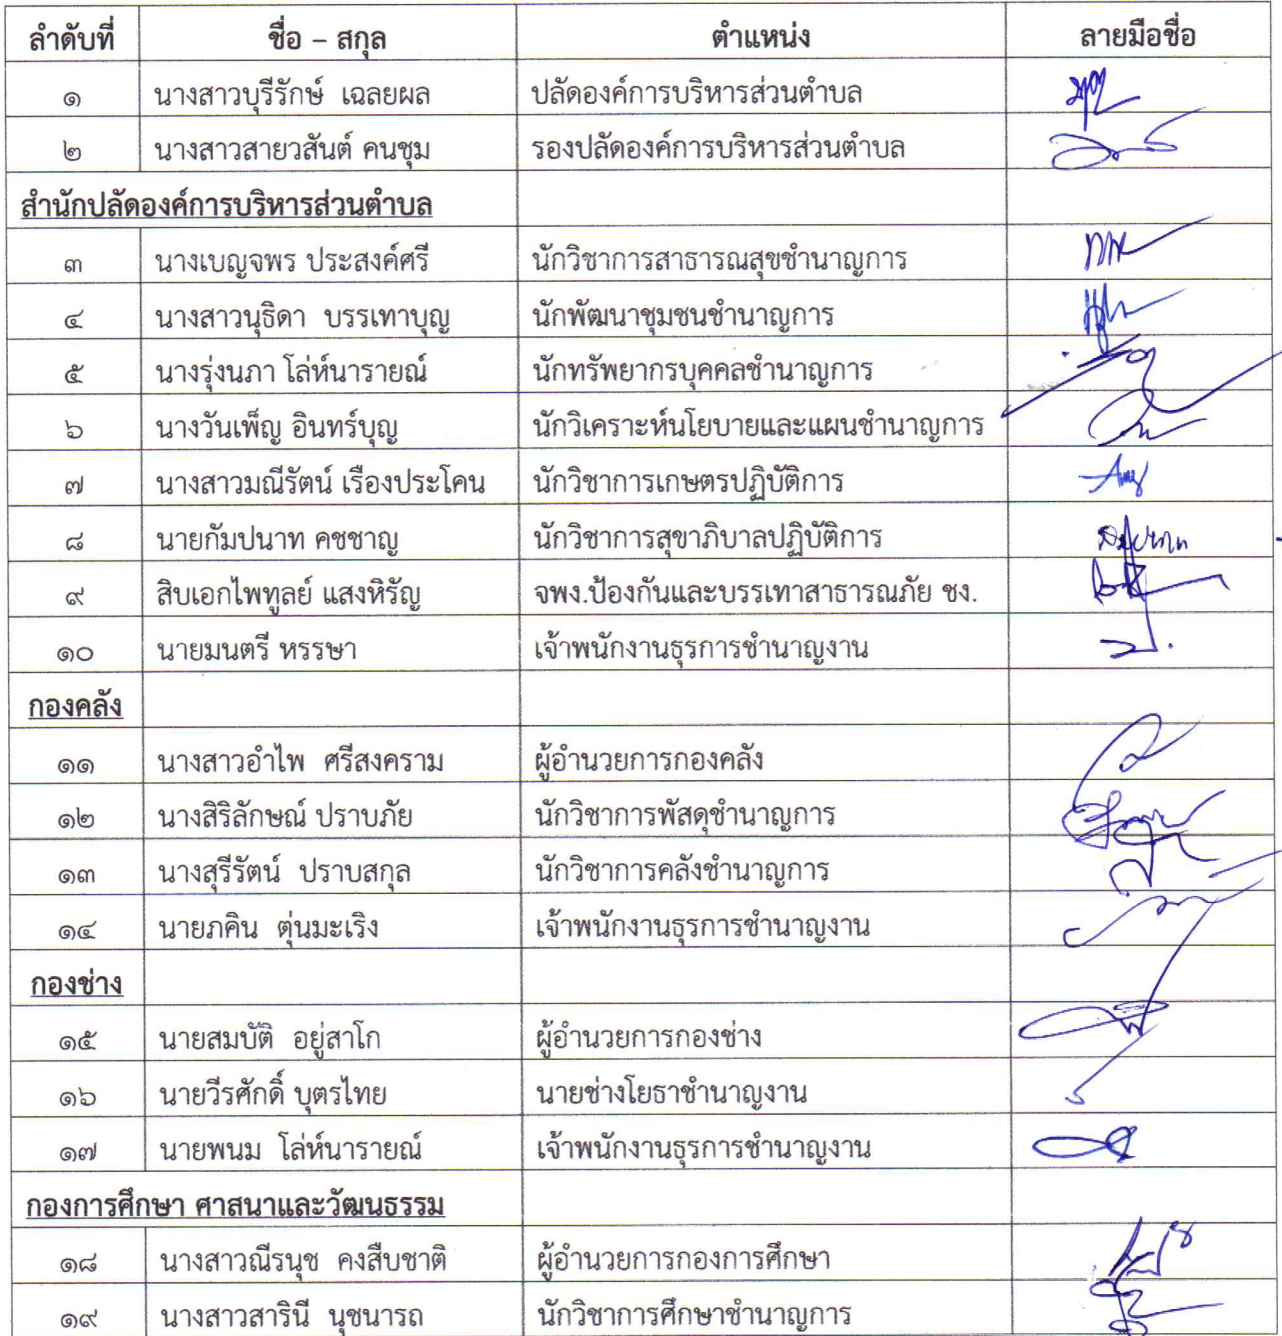 ลำดับที่ ชื่อ – สกุล ตำแหน่ง ลายมือชื่อ
๑ นางสาวบุรีรักษ์ เฉลยผล ปลัดองค์การบริหารส่วนตำบล
๒ นางสาวสายวสันต์ คนชุม รองปลัดองค์การบริหารส่วนตำบล
สำนักปลัดองค์การบริหารส่วนตำบล
๓ นางเบญจพร ประสงค์ศรี นักวิชาการสาธารณสุขชำนาญการ
๔ นางสาวนุธิดา บรรเทาบุญ นักพัฒนาชุมชนชำนาญการ
๕ นางรุ่งนภา โล่ห์นารายณ์ นักทรัพยากรบุคคลชำนาญการ
๖ นางวันเพ็ญ อินทร์บุญ นักวิเคราะห์นโยบายและแผนชำนาญการ
๗ นางสาวมณีรัตน์ เรืองประโคน นักวิชาการเกษตรปฏิบัติการ
๘ นายกัมปนาท คชชาญ นักวิชาการสุขาภิบาลปฏิบัติการ
๙ สิบเอกไพฑูลย์ แสงหิรัญ จพง.ป้องกันและบรรเทาสาธารณภัย ชง.
๑๐ นายมนตรี หรรษา เจ้าพนักงานธุรการชำนาญงาน
กองคลัง
๑๑ นางสาวอำไพ ศรีสงคราม ผู้อำนวยการกองคลัง
๑๒ นางสิริลักษณ์ ปราบภัย นักวิชาการพัสดุชำนาญการ
๑๓ นางสุรีรัตน์ ปราบสกุล นักวิชาการคลังชำนาญการ
๑๔ นายภคิน ตุ่นมะเริง เจ้าพนักงานธุรการชำนาญงาน
กองช่าง
๑๕ นายสมบัติ อยู่สาโก ผู้อำนวยการกองช่าง
๑๖ นายวีรศักดิ์ บุตรไทย นายช่างโยธาชำนาญงาน
๑๗ นายพนม โล่ห์นารายณ์ เจ้าพนักงานธุรการชำนาญงาน
กองการศึกษา ศาสนาและวัฒนธรรม
๑๘ นางสาวณีรนุช คงสืบชาติ ผู้อำนวยการกองการศึกษา
๑๙ นางสาวสารินี นุชนารถ นักวิชาการศึกษาชำนาญการ